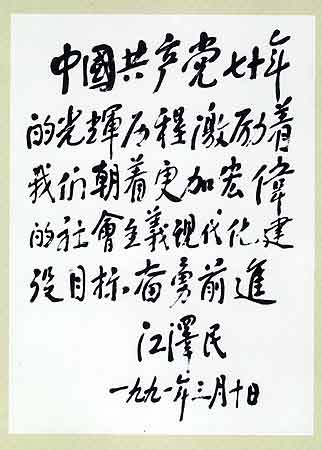 中國共产党七十年
的光輝历程激励着
我们朝着更加宏偉
的社會主義现代化建
设目标。奋勇前進
江澤民
一九九一年三月十日